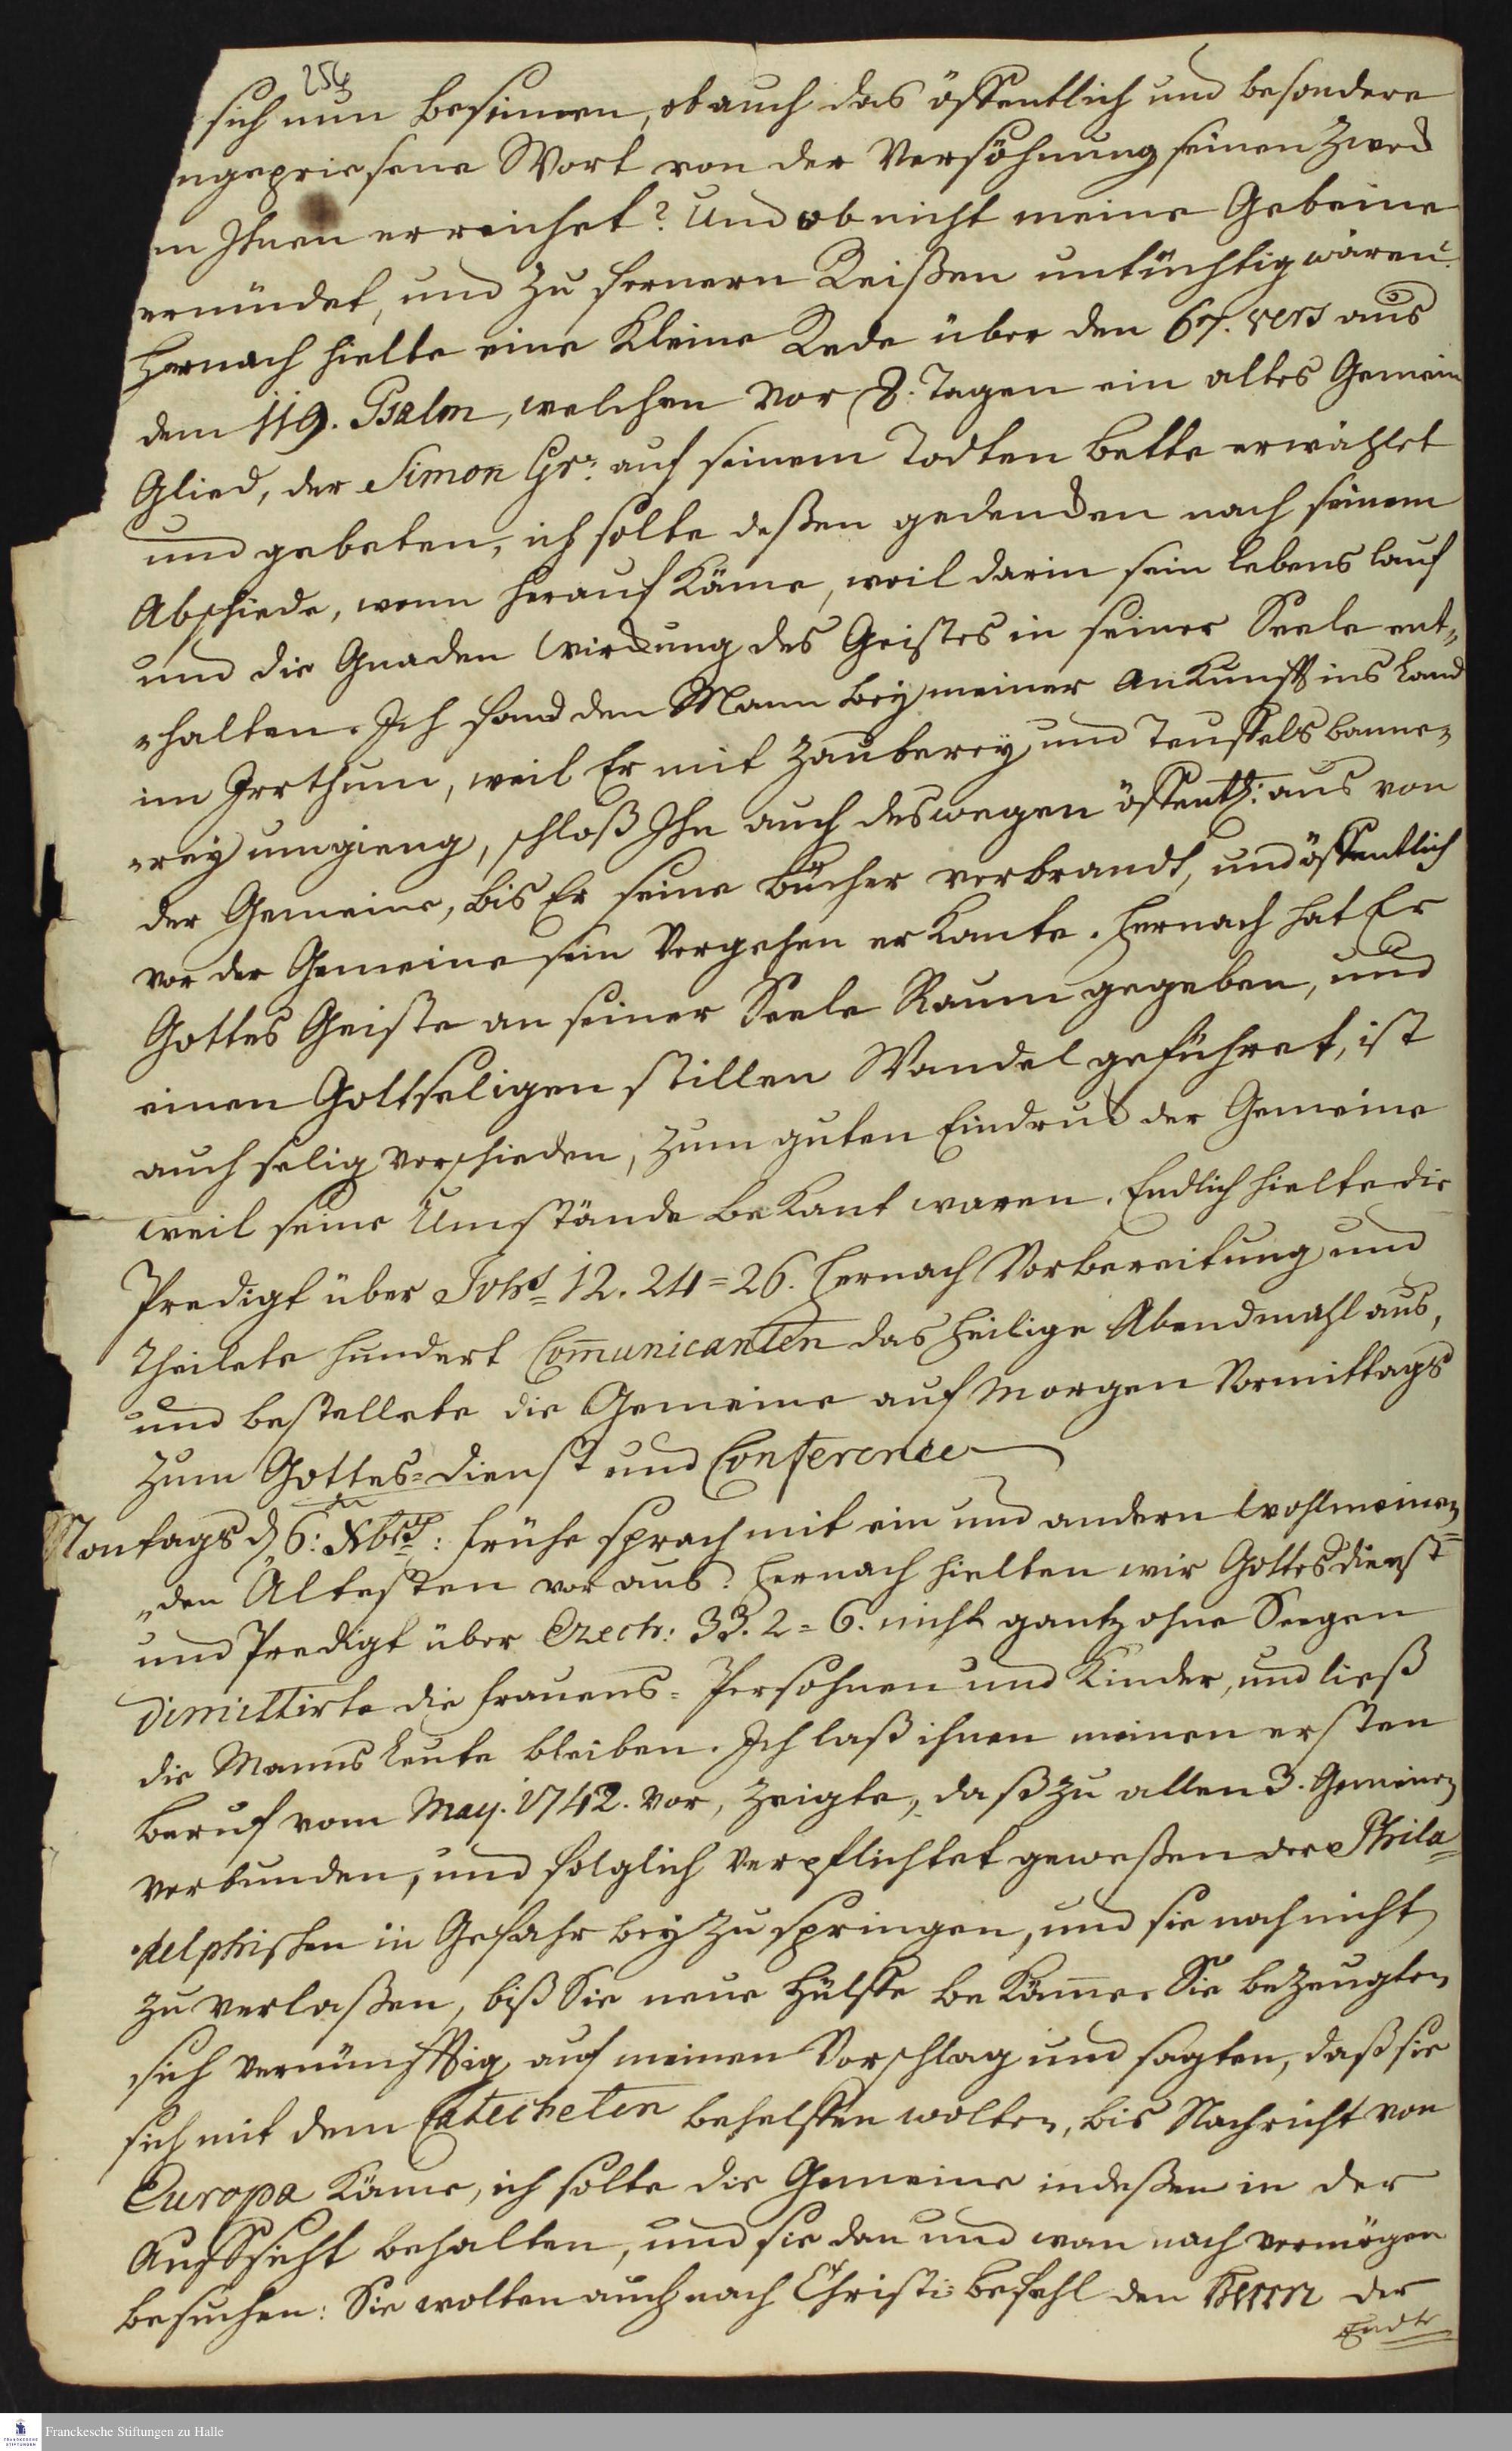 256
sich nun besinnen, ob auch das öffentlich und besondere
ngepriesene Wort von der Versöhnung seinen Zweck
in Ihnen erreichet? Und ob nicht meine Gebeine
ermüdet, und zu fernern Reißen untüchtig wären?
Hernach hielte eine Kleine Rede über den 67. vers aus
dem 119. Psalm, welchen vor 8. Tagen ein altes Gemein
Glied, der Simon Gr: auf seinem Todten bette erwählet
und gebeten, ich solte deßen gedencken nach seinem
Abschiede, wenn herauf käme, weil darin sein lebens lauf
und die Gnaden Wirckung des Geistes in seiner Seele ent-
-halten. Ich fand den Mann bey meiner Ankunfft ins Land
im Irrthum, weil Er mit Zauberey und Teuffels banne-
-rey umgieng, schloß Ihn auch deswegen öffentl: aus von
der Gemeine, bis Er seine Bücher verbrandt, und öffentlich
vor der Gemeine sein Vergehen erkante. Hernach hat Er
Gottes Geiste an seiner Seele Raum gegeben, und
einen Gottseligen stillen Wandel geführet, ist
auch selig verschieden, zum guten Eindruck der Gemeine
weil seine Umstände bekant waren. Endlich hielte die
Predigt über Joh: 12. 24=26. Hernach Vorbereitung und
Theilete hundert Communicanten das heilige Abendmahl aus,
und bestellete die Gemeine auf Morgen Vormittags
zum Gottes=dienst und Conference
Montags d. 6: Xbr: frühe sprach mit ein und andern wohlmeinen
-den Altesten voraus. Hernach hielten wir Gottesdienst
und Predigt über Ezech: 33. 2=6. nicht gantz ohne Seegen
dimittirte die Frauens=Persohnen und Kinder, und ließ
die Manns Leute bleiben. Ich laß ihnen meinen ersten
beruf vom May. 1742. vor, zeigte, daß zu allen 3. Gemeinen
verbunden, und folglich verpflichtet geweßen der Phila
delphischen in Gefahr bey zu springen, und sie noch nicht
zu verlaßen, biß Sie neue Hülffe bekäme. Sie bezeugten
sich vernünfftig auf meinen Vorschlag und sagten, daß sie
sich mit dem Catecheten behelffen wolten, bis Nachricht von
Europa käme, ich solte die Gemeine indeßen in der
Aufsicht behalten, und sie dan und wan nach vermögen
besuchen: Sie wolten auch nach Christi befehl den Herrn der
Endte
Franckesche Stiftungen zu Halle